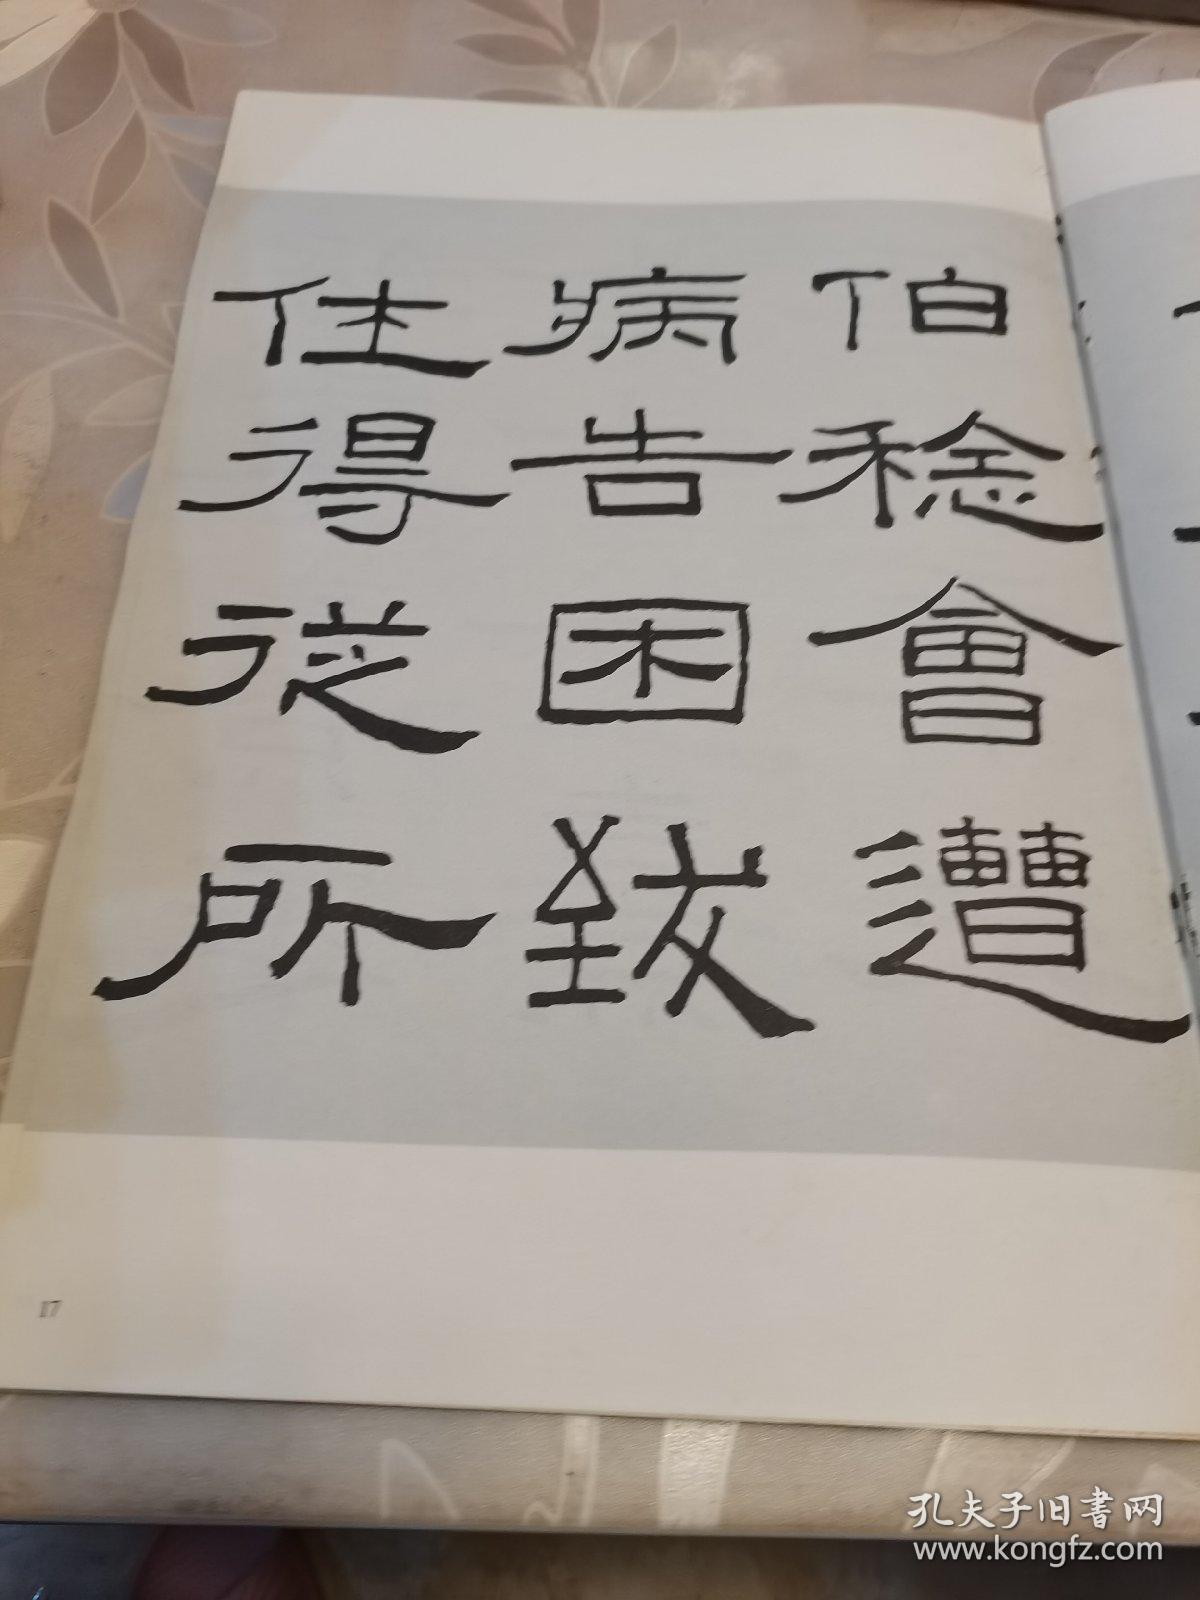 伯稔會遭
病告困致
住得從所
17
孔夫子旧書网
www.kongfz.com